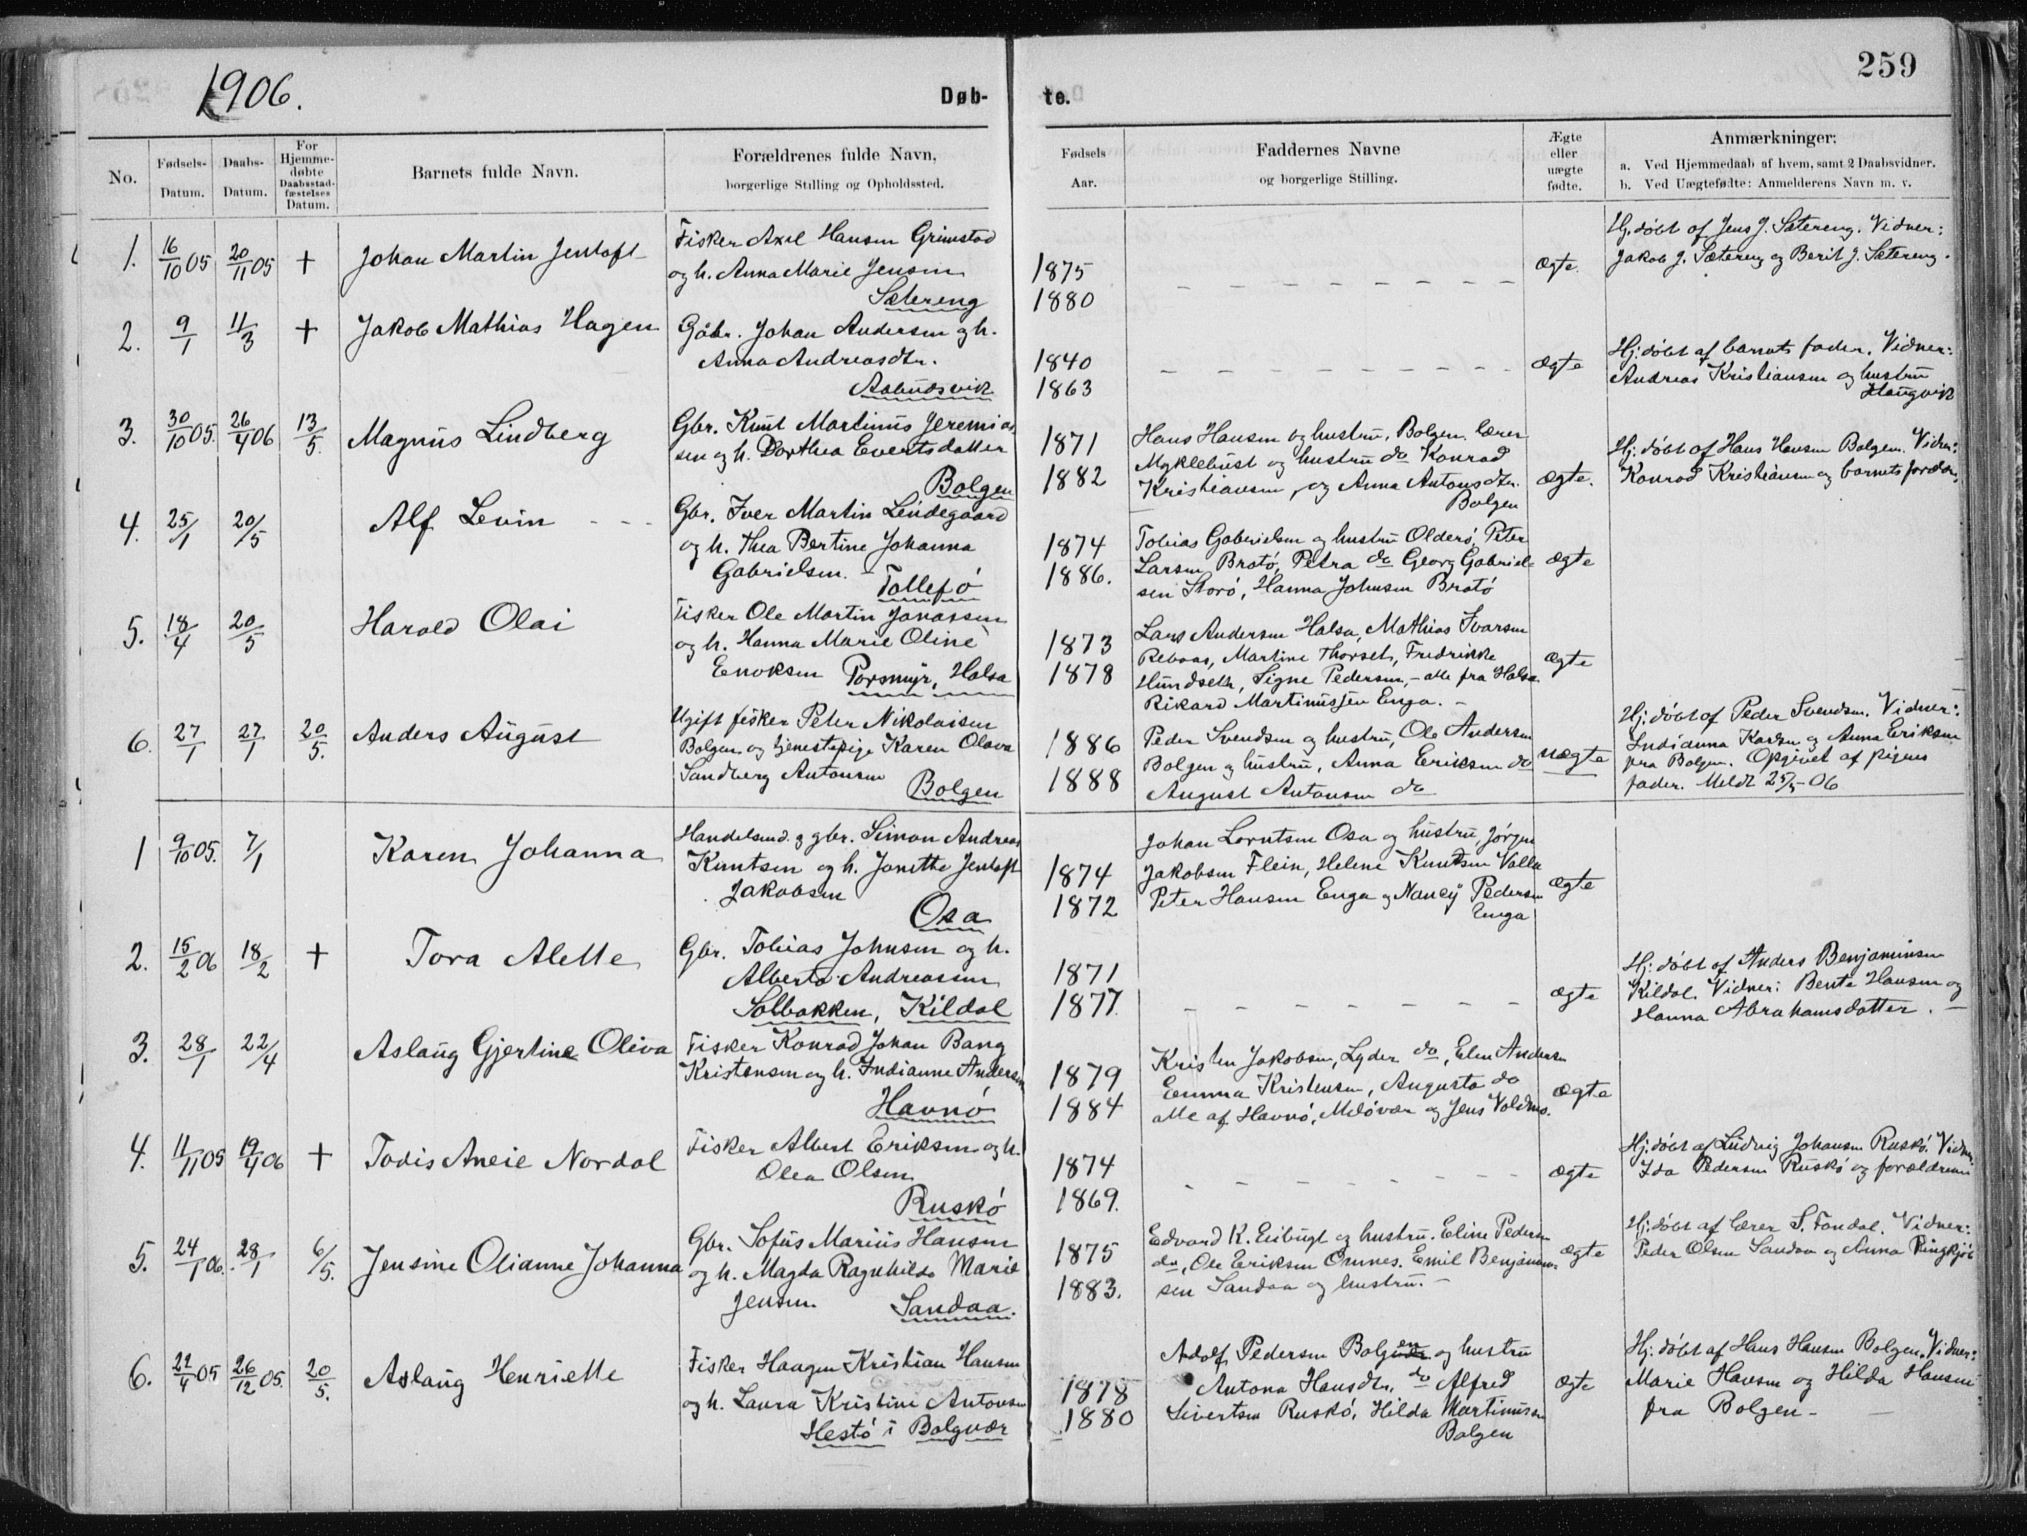 1906.
Døb-
te.
259
No.
Fødsels-
Datum.
Daabs-
Datum.
For
Hjemme-
døbte
Daabsstad-
fæstelses
Datum.
Barnets fulde Navn.
Forældrenes fulde Navn,
borgerlige Stilling og Opholdssted.
Fødsels
Aar.
Faddernes Navne
og borgerlige Stilling.
Ægte
eller
uægte
fødte.
Anmærkninger:
a. Ved Hjemmedaab af hvem, samt 2 Daabsvidner.
b. Ved Uægtefødte: Anmelderens Navn m. v.
1. 16/10 05 20/11 05 + Johan Martin Jentoft
Fisker Axel Hansen Grimstad
og h. Anna Marie Jensen
Sætereng
1875
1880
ægte.
Hj. døbt af Jens J. Sætereng. Vidner:
Jakob J. Sætereng og Berit J. Sætereng.
2. 9/1 11/3 + Jakob Mathias Hagen
Gåbr. Johan Andersen og h.
Anna Andreasdtr.
Aabudsvik
1840
1863
ægte
Hj. døbt af barnets fader. Vidner:
Andreas Kristiansen og hustru
Haugvik
3. 30/10 05. 26/4 06 13/5. Magnus Lindberg
Gbr. Knut Martinus Jeremias
sen og h. Dorthea Evertsdatter
Bolgen
1871
1882
Hans Hansen og hustru, Bolgen. Lærer
Myklebust og hustru do Konrad
Kristiansen, og Anna Antonsdtr.
Bolgen
ægte.
Hj. døbt af Hans Hansen Bolgen. Vidner:
Konrad Kristiansen og barnets forældre.
4. 25/1 20/5 Alf Levin
Gbr. Iver Martin Lindegaard
og h. Thea Bertine Johanna
Gabrielsen. - Tollefø
1874
1886.
Tobias Gabrielsen og hustru Olderø, Peter
Larsen Brotø, Petra do Georg Gabriel-
sen Storø, Hanna Johnsen Brotø
ægte
5. 18/4 20/5 Harald Olai
Fisker Ole Martin Jonassen
og h. Hanna Marie Oline
Enoksen Porsmyr, Halsa
1873
1878
Lars Andersen Halsa, Mathias Ivarsen
Reboas, Martine Thorset, Fredrikke
Hundseth, Signe Pedersen, - alle fra Halsa.
Rikard Martinussen Enga. -
ægte
6. 27/1 27/1 20/5. Anders August
Ugift fisker Peter Nikolaisen
Bolgen og tjenestepige Karen Olava
Sandberg Antonsen
Bolgen
1886
1888
Peder Svendsen og hustru, Ole Andersen
Bolgen og hustru, Anna Eriksen do
August Antonsen do
uægte
Hj. døbt af Peder Svendsen. Vidner:
Indianna Karlsen og Anna Eriksen
fra Bolgen. Opgivet af pigens
fader. Meldt 25/5-06
1 9/10 05. 7/1 Karen Johanna
Handelsmd. og gbr. Simon Andreas
Knutsen og h. Janette Jentoft
Jakobsen
Osa
1874
1872
Johan Lorntsen Osa og hustru, Jørgen
Jakobsen Flein, Helene Knutsen Valla
Peter Hansen Enga og Nancy Pedersen
Enga
ægte
2. 15/2 06 18/2 + Tora Alette
Gbr. Tobias Johnsen og h.
Alberta Andreassen
Solbakken, Kildal
1871
1877.
ægte
Hj. døbt af Anders Benjaminsen
Kildal. Vidner: Bente Hansen og
Hanna Abrahamsdatter. -
3. 28/1 22/4 Aslaug Gjertine Oliva
Fisker Konrad Johan Bang
Kristensen og h. Indianne Andersen
Havnø
1879
1884
Kristen Jakobsen, Lyder do, Elen Andersen
Emma Kristensen, Augusta do
alle af Havnø, Meløvær og Jens Voldmo.
ægte
4. 11/11 05 19/4 06 + Todis Aneie Nordal
Fisker Albert Eriksen og h.
Olea Olsen
Ruskø
1874
1869.
ægte
Hj. døbt af Ludvig Johansen Ruskø. Vidner
Ida Pedersen Ruskø og forældrene
5. 24/1 06. 28/1 6/5. Jensine Olianne Johanna
Gbr. Sofus Marius Hansen
og h. Magda Ragnhilda Marie
Jensen Sandaa.
1875
1883.
Edvard K. Eibugt og hustru. Eline Pedersen
do, Ole Eriksen Omnes. Emil Benjamin-
sen Sandaa og hustru. -
ægte
Hj. døbt af Lærer S. Fondal. Vidner:
Peder Olsen Sandaa og Anna Ringkjøb
6. 22/4 05 26/12 05. 20/5. Aslaug Henriette
Fisker Haagen Kristian Hansen
og h. Laura Kristine Antonsen
Hestø i Bolgvær
1878
1880
Adolf Pedersen Bolgen og hustru
Antona Hansdtr. do Alfred
Sivertsen Ruskø, Hilda Martinussen
Bolgen
ægte
Hj. døbt af Hans Hansen Bolgen. Vidner:
Marie Hansen og Hilda Hansen
fra Bolgen -